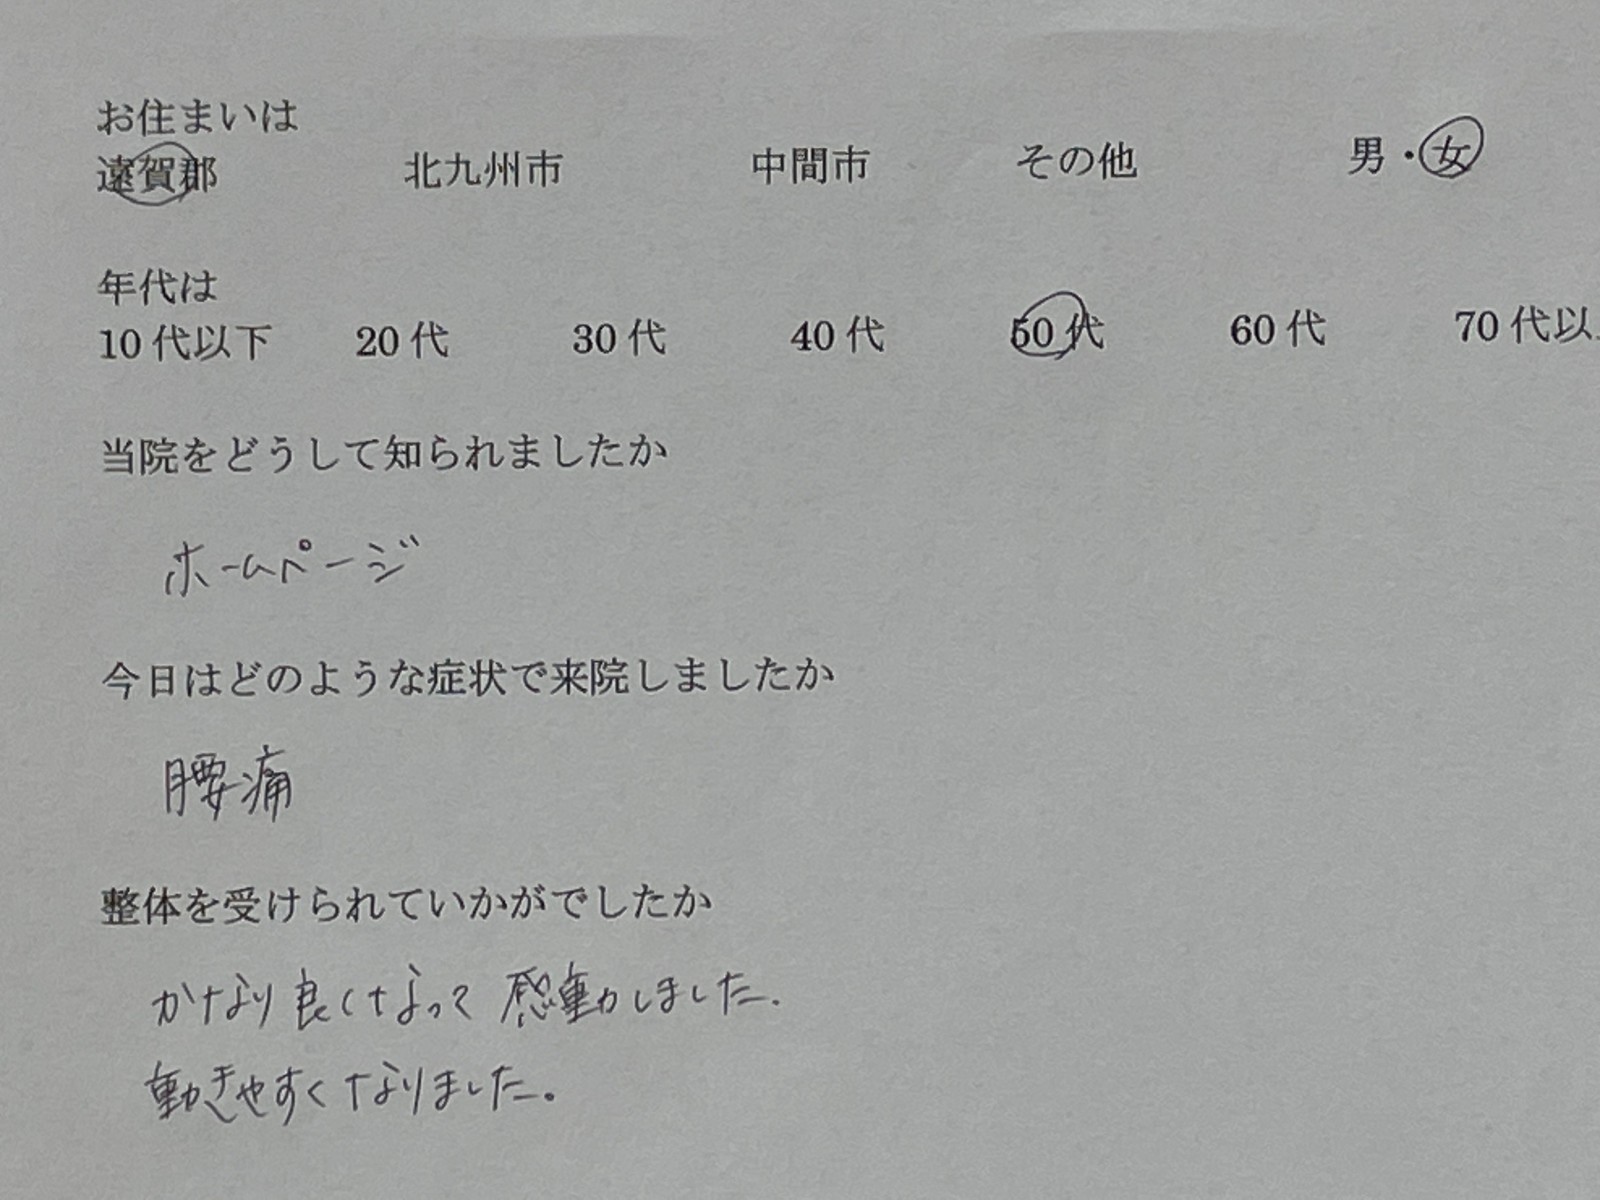 お住まいは
遠賀郡 北九州市 中間市 その他 男・女
年代は
10代以下 20代 30代 40代 50代 60代 70代以
当院をどうして知られましたか
ホームページ
今日はどのような症状で来院しましたか
腰痛
整体を受けられていかがでしたか
かなり良くなって感動しました.
動きやすくなりました。